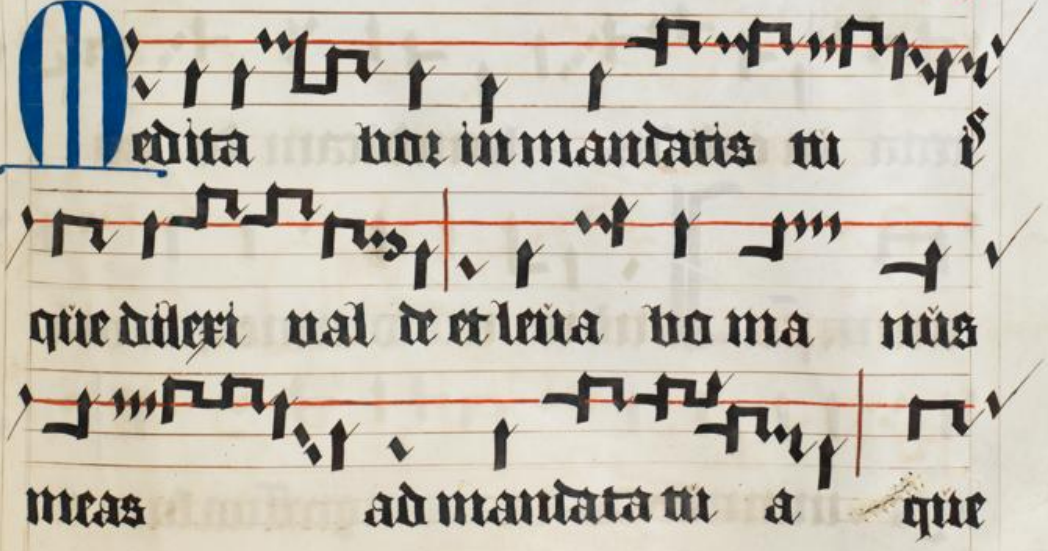 Medita bor in mandatis tu is
que dilexi val de et leua bo ma nus
meas ad mandata tu a que